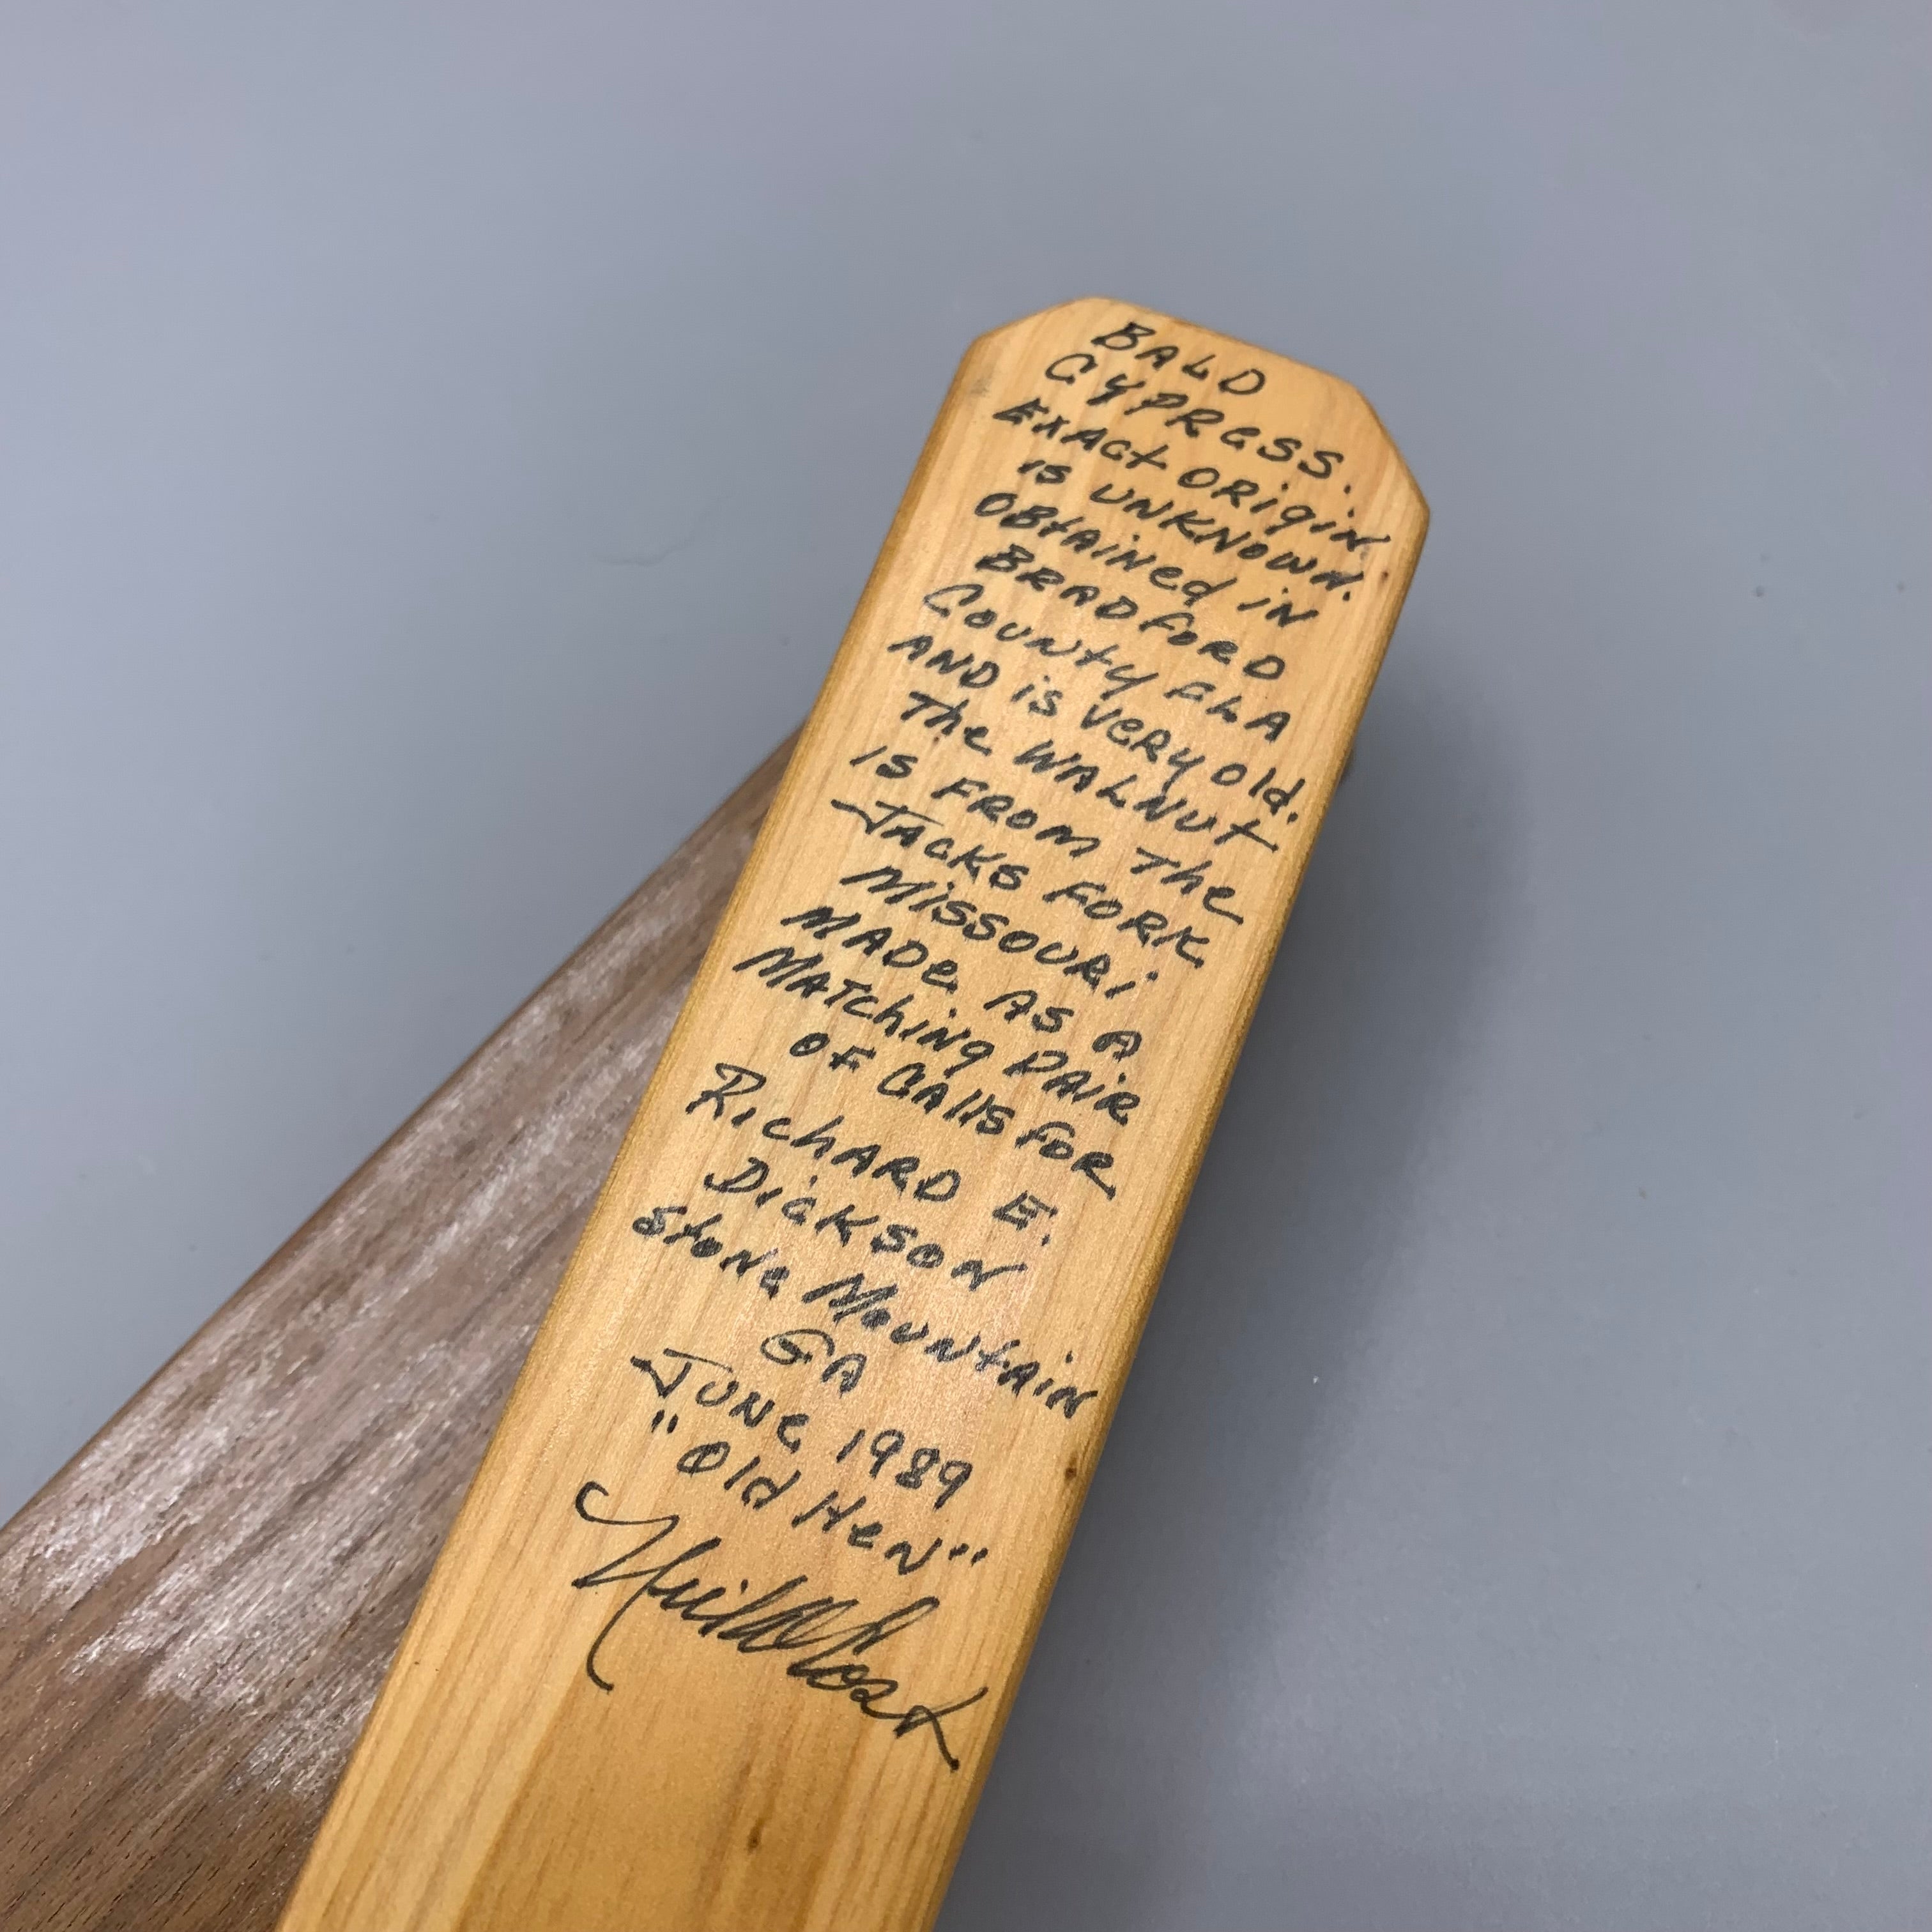 BALD
CYPRESS.
EXACT ORIGIN
IS UNKNOWN.
OBTAINED IN
BRADFORD
COUNTY FLA
AND IS VERY OLD.
The WALNUT
IS FROM The
JACKS FORK
MISSOURI
MADE AS A
MATChING PAIR
OF CALLS FOR
RIChARD E.
DICKSON
Stone Mountain
GA
JUNE 1989
"Old Hen"
Neil Cost